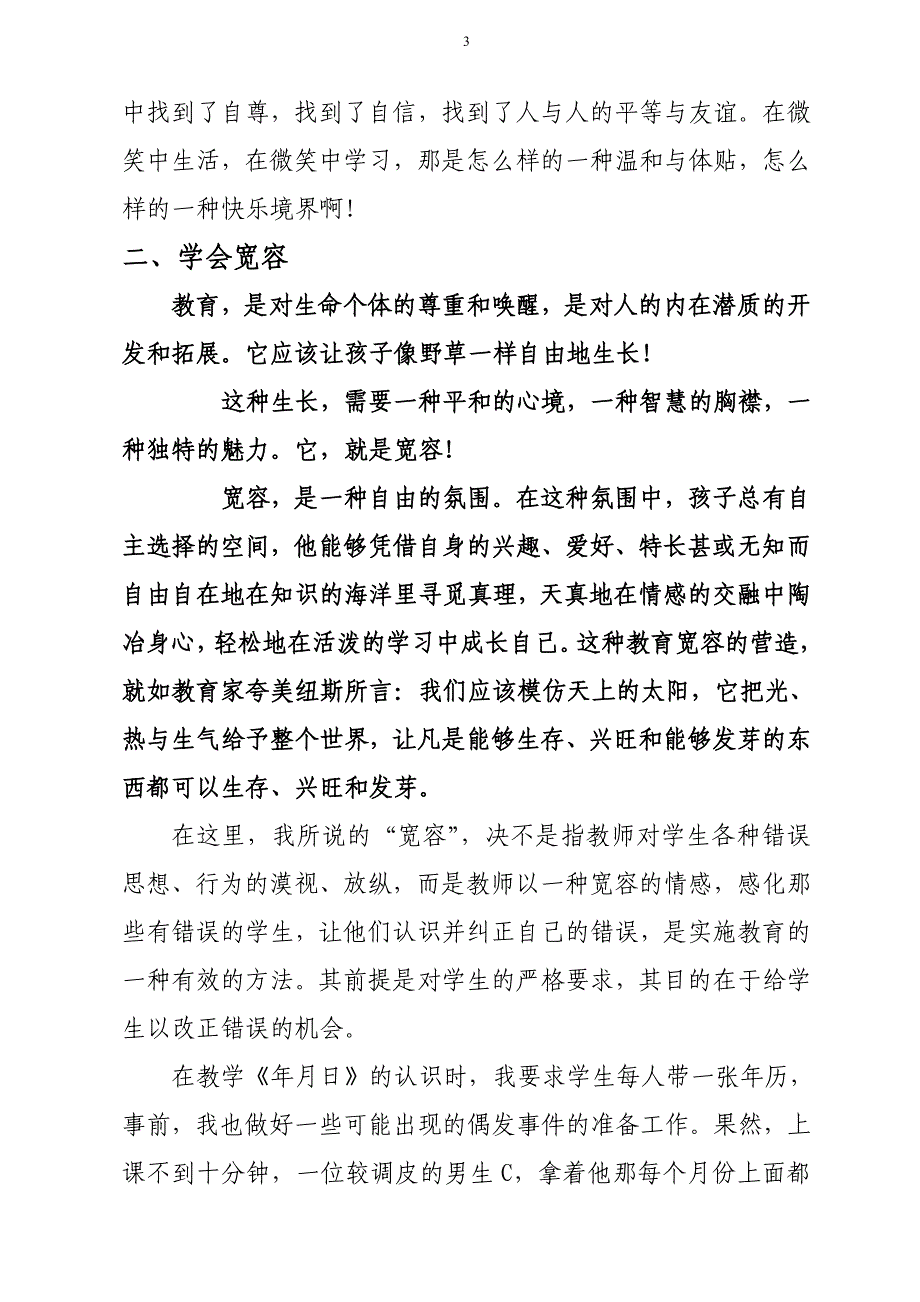 3
中找到了自尊，找到了自信，找到了人与人的平等与友谊。在微
笑中生活，在微笑中学习，那是怎么样的一种温和与体贴，怎么
样的一种快乐境界啊！
二、学会宽容
教育，是对生命个体的尊重和唤醒，是对人的内在潜质的开
发和拓展。它应该让孩子像野草一样自由地生长！
这种生长，需要一种平和的心境，一种智慧的胸襟，一
种独特的魅力。它，就是宽容！
宽容，是一种自由的氛围。在这种氛围中，孩子总有自
主选择的空间，他能够凭借自身的兴趣、爱好、特长甚或无知而
自由自在地在知识的海洋里寻觅真理，天真地在情感的交融中陶
冶身心，轻松地在活泼的学习中成长自己。这种教育宽容的营造，
就如教育家夸美纽斯所言：我们应该模仿天上的太阳，它把光、
热与生气给予整个世界，让凡是能够生存、兴旺和能够发芽的东
西都可以生存、兴旺和发芽。
在这里，我所说的“宽容”，决不是指教师对学生各种错误
思想、行为的漠视、放纵，而是教师以一种宽容的情感，感化那
些有错误的学生，让他们认识并纠正自己的错误，是实施教育的
一种有效的方法。其前提是对学生的严格要求，其目的在于给学
生以改正错误的机会。
在教学《年月日》的认识时，我要求学生每人带一张年历，
事前，我也做好一些可能出现的偶发事件的准备工作。果然，上
课不到十分钟，一位较调皮的男生 C，拿着他那每个月份上面都